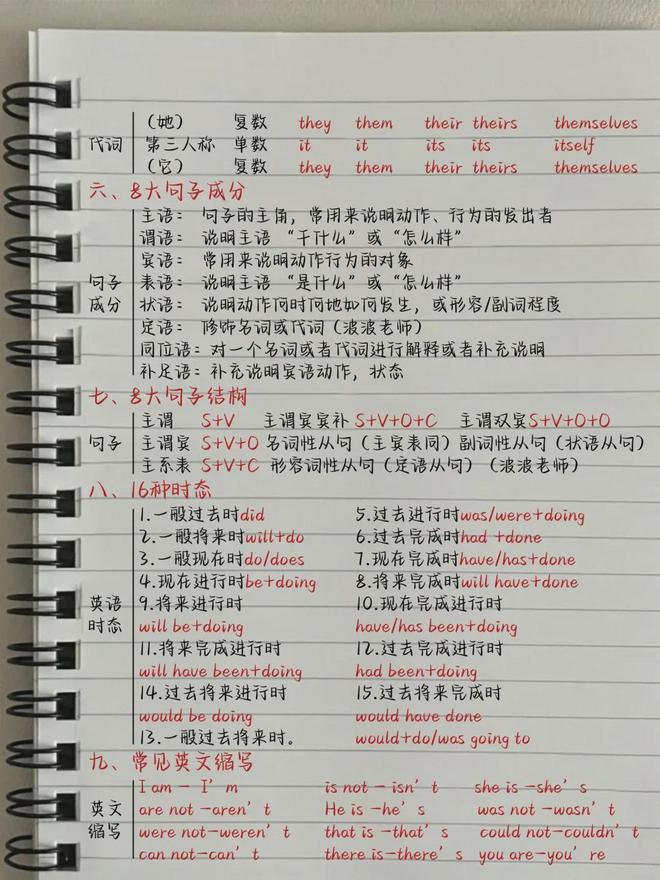 （她） 复数 they them their theirs themselves
代词 第三人称 单数 it it its its itself
（它） 复数 they them their theirs themselves
六、8大句子成分
主语： 句子的主角，常用来说明动作、行为的发出者
谓语： 说明主语 “干什么”或“怎么样”
宾语： 常用来说明动作行为的对象
句子 表语： 说明主语 “是什么”或“怎么样”
成分 状语： 说明动作何时何地如何发生，或形容/副词程度
定语： 修饰名词或代词（波波老师）
同位语：对一个名词或者代词进行解释或者补充说明
补足语：补充说明宾语动作，状态
七、8大句子结构
主谓 S+V 主谓宾宾补 S+V+O+C 主谓双宾S+V+O+O
句子 主谓宾 S+V+O 名词性从句（主宾表同）副词性从句（状语从句）
主系表 S+V+C 形容词性从句（定语从句）（波波老师）
八、16种时态
1.一般过去时did 5.过去进行时was/were+doing
2.一般将来时will+do 6.过去完成时had +done
3.一般现在时do/does 7.现在完成时have/has+done
4.现在进行时be+doing 8.将来完成时will have+done
英语 9.将来进行时 10.现在完成进行时
时态 will be+doing have/has been+doing
11.将来完成进行时 12.过去完成进行时
will have been+doing had been+doing
14.过去将来进行时 15.过去将来完成时
would be doing would have done
13.一般过去将来时。 would+do/was going to
九、常见英文缩写
I am – I’m is not – isn’t she is –she’s
英文 are not –aren’t He is –he’s was not –wasn’t
缩写 were not–weren’t that is –that’s could not–couldn’t
can not–can’t there is–there’s you are–you’re